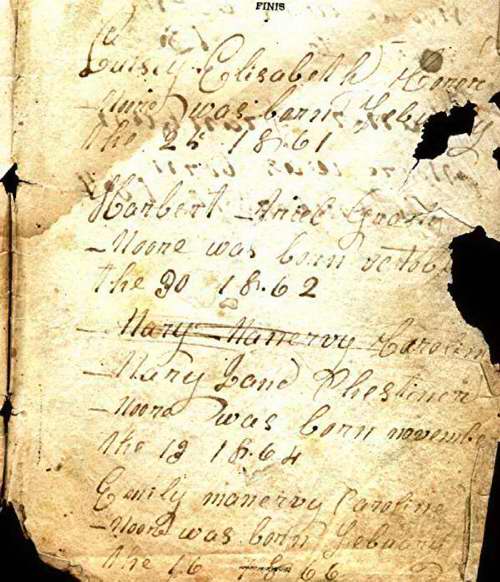 FINIS
Lutsey Elisabeth
Moore was born Febu y
the 25 1861
Harbert
Moore was born octob
the 30 1862
Mary Manervy Carolin
Mary Jane Chestiner
Moore was born novembe
the 13 1864
Emily manervy Carolin
Moore was born Febuary
the 16 1866